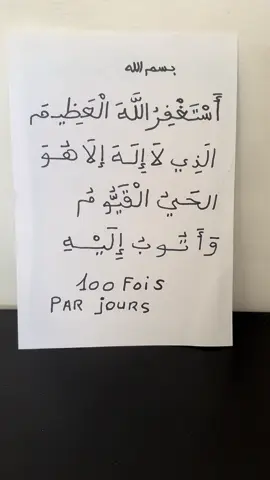 بسم الله
أَسْتَغْفِرُ اللَّهَ الْعَظِيمَ
الَذِي لَا إِلَهَ إِلَا هُوَ
الحَيُ الْقَيُّومُ
وَأَتُوبُ إِلَيْهِ
100 Fois
PAR jOURS